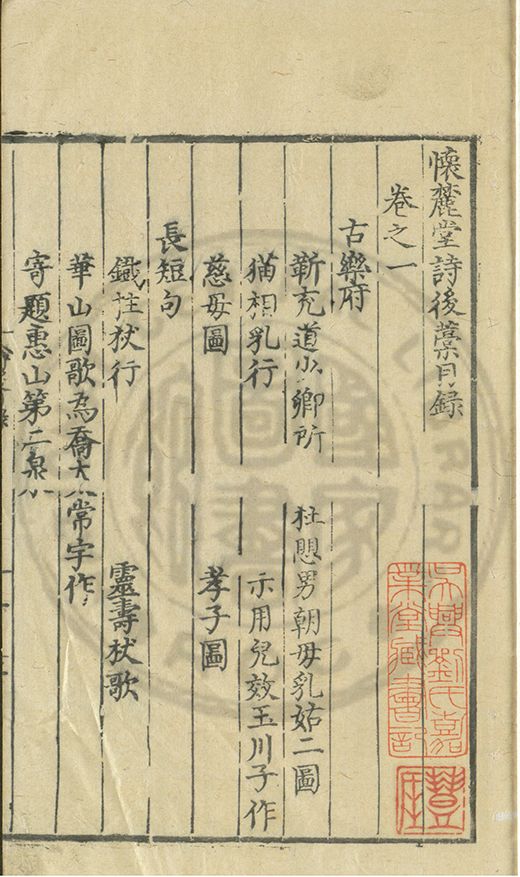 懷麓堂詩後藁目錄
卷之一
古樂府
靳充道少卿所 枉愳男朝母乳姑二圖
猫相乳行 示用兒效玉川子作
慈母圖 孝子圖
長短句
鐵拄杖行 靈壽杖歌
華山圖歌為喬太常宇作
寄題惠山第二泉
吳興劉氏嘉
業堂藏書記